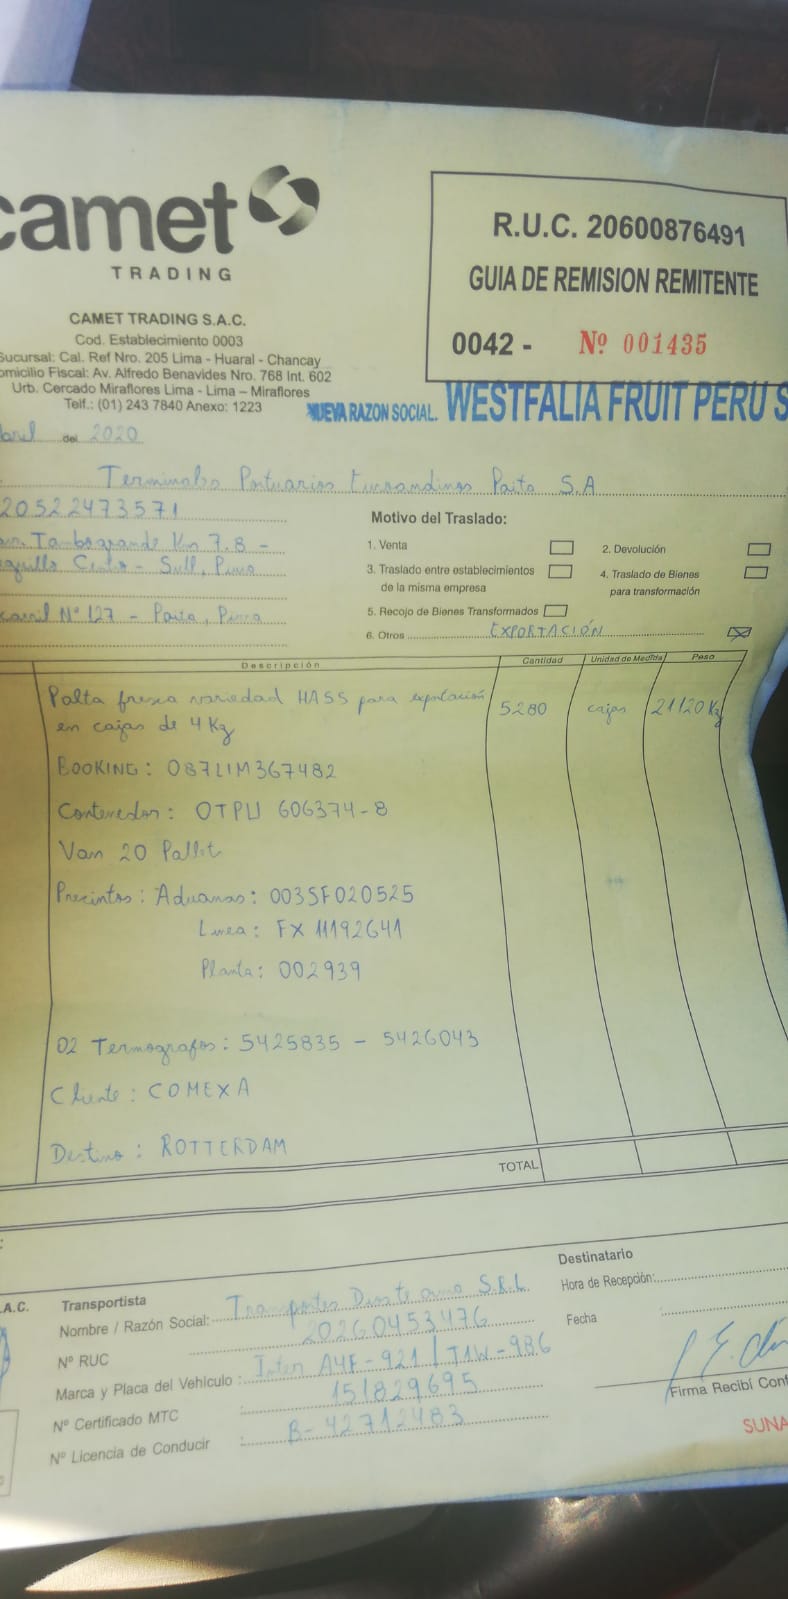 camet
TRADING
CAMET TRADING S.A.C.
Cod. Establecimiento 0003
Sucursal: Cal. Ref Nro. 205 Lima - Huaral - Chancay
omicilio Fiscal: Av. Alfredo Benavides Nro. 768 Int. 602
Urb. Cercado Miraflores Lima - Lima – Miraflores
Telf.: (01) 243 7840 Anexo: 1223
R.U.C. 20600876491
GUIA DE REMISION REMITENTE
0042 - Nº 001435
NUEVA RAZON SOCIAL. WESTFALIA FRUIT PERU S
bril del 2020
Terminales Portuarios Euroandinos Paita S.A
20522473571
Tambogrande Km 7.8 -
Cieneguillo Centro - Sull, Piura
carril Nº 127 - Paita, Piura
Motivo del Traslado:
1. Venta
2. Devolución
3. Traslado entre establecimientos
de la misma empresa
4. Traslado de Bienes
para transformación
5. Recojo de Bienes Transformados
6. Otros EXPORTACIÓN
Descripción Cantidad Unidad de Medida Peso
Palta fresca variedad HASS para exportación 5280 cajas 21120 Kg
en cajas de 4 Kg
BOOKING: 087LIM367482
Contenedor: OTPU 606374-8
Van 20 Pallet
Precintos: Aduanas: 003SF020525
Linea: FX 11192641
Planta: 002939
02 Termografos: 5425835 - 5426043
Cliente: COMEXA
Destino: ROTTERDAM
TOTAL
A.C.
Transportista
Nombre / Razón Social: Transportes Dios te ama S.R.L
Nº RUC 20260453476
Marca y Placa del Vehículo: Inter A4F-921 / T1W-986
Nº Certificado MTC : 151829695
Nº Licencia de Conducir : B-42712483
Destinatario
Hora de Recepción:
Fecha :
Firma Recibí Conf
SUNA